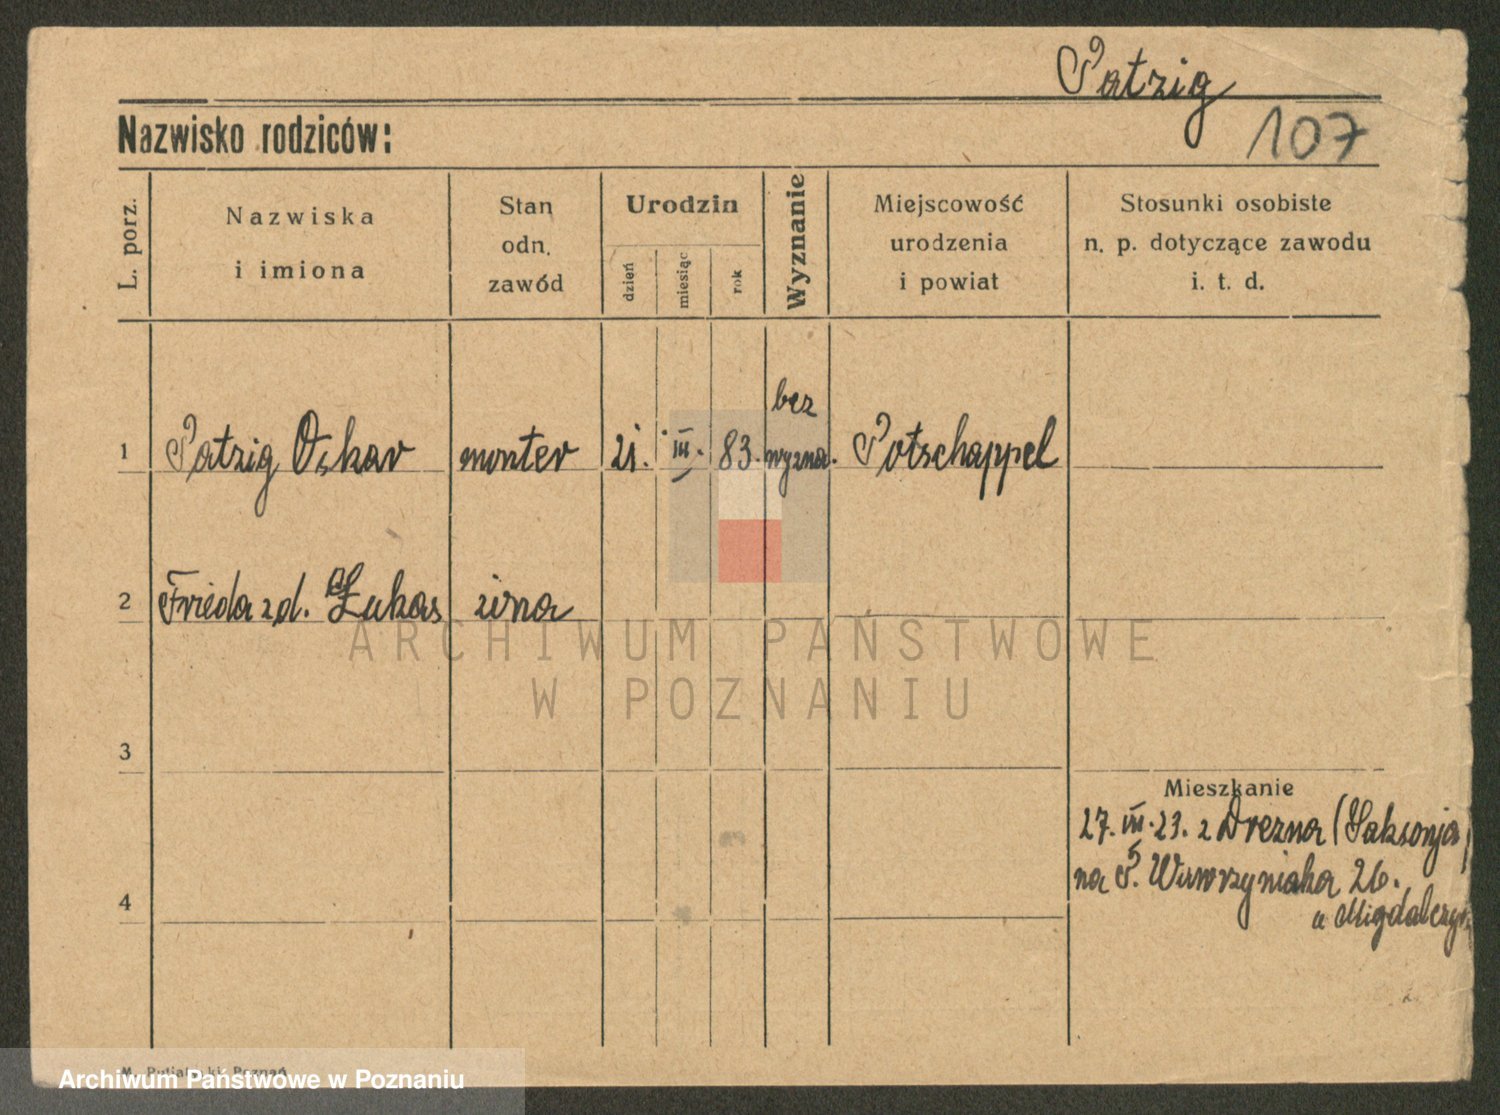 Patzig
107
Nazwisko rodziców:
L. porz.
Nazwiska
i imiona
Stan
odn.
zawód
Urodzin
dzień
miesiąc
rok
Wyznanie
Miejscowość
urodzenia
i powiat
Stosunki osobiste
n. p. dotyczące zawodu
i. t. d.
bez
1 Patzig Oskar monter 21. III. 83. wyzna. Potschappel
2 Frieda z d. Lukas żona
ARCHIWUM PAŃSTWOWE
W POZNANIU
3
Mieszkanie
27. III. 23. z Drezna (Saksonja)
na P. Wawrzyniaka 26.
4
u
M. Putiatycki Poznań
Archiwum Państwowe w Poznaniu